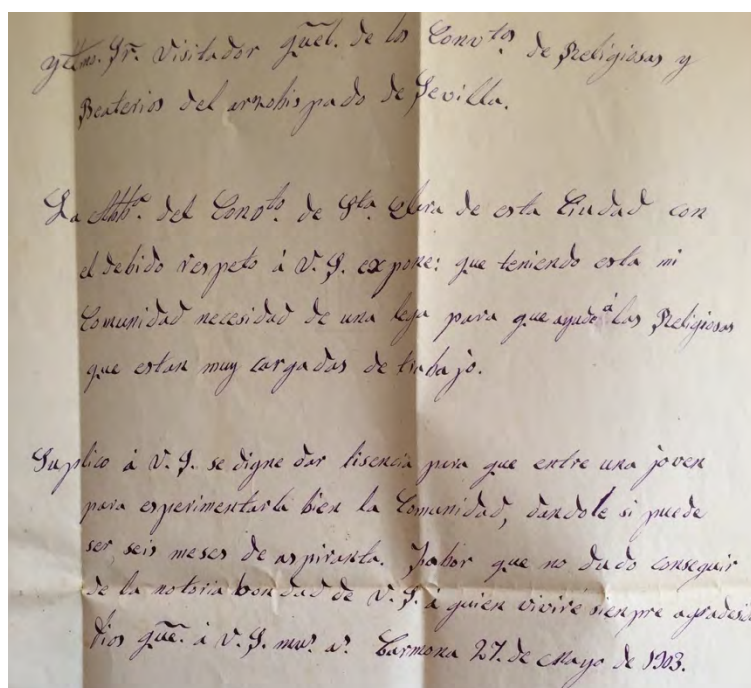 Yltmo. Sr. Visitador gūel. de los Convtos de Religiosas y
Beaterios del arzobispado de Sevilla.
La Abba. del Convto. de Sta Clara de esta Ciudad con
el debido respeto á V. S. expone: que teniendo esta mi
Comunidad necesidad de una lega para que ayude á las Religiosas
que estan muy cargadas de trabajo.
Suplico á V. S. se digne dar lisencia para que entre una joven
para esperimentarla bien la Comunidad, dandole si puede
ser seis meses de aspiranta. Fabor que no dudo conseguir
de la notoria bondad de V. S. á quien viviré sienpre agradesid
Dios gūe. á V. S. mus. as. Carmona 27. de Mayo de 1903.